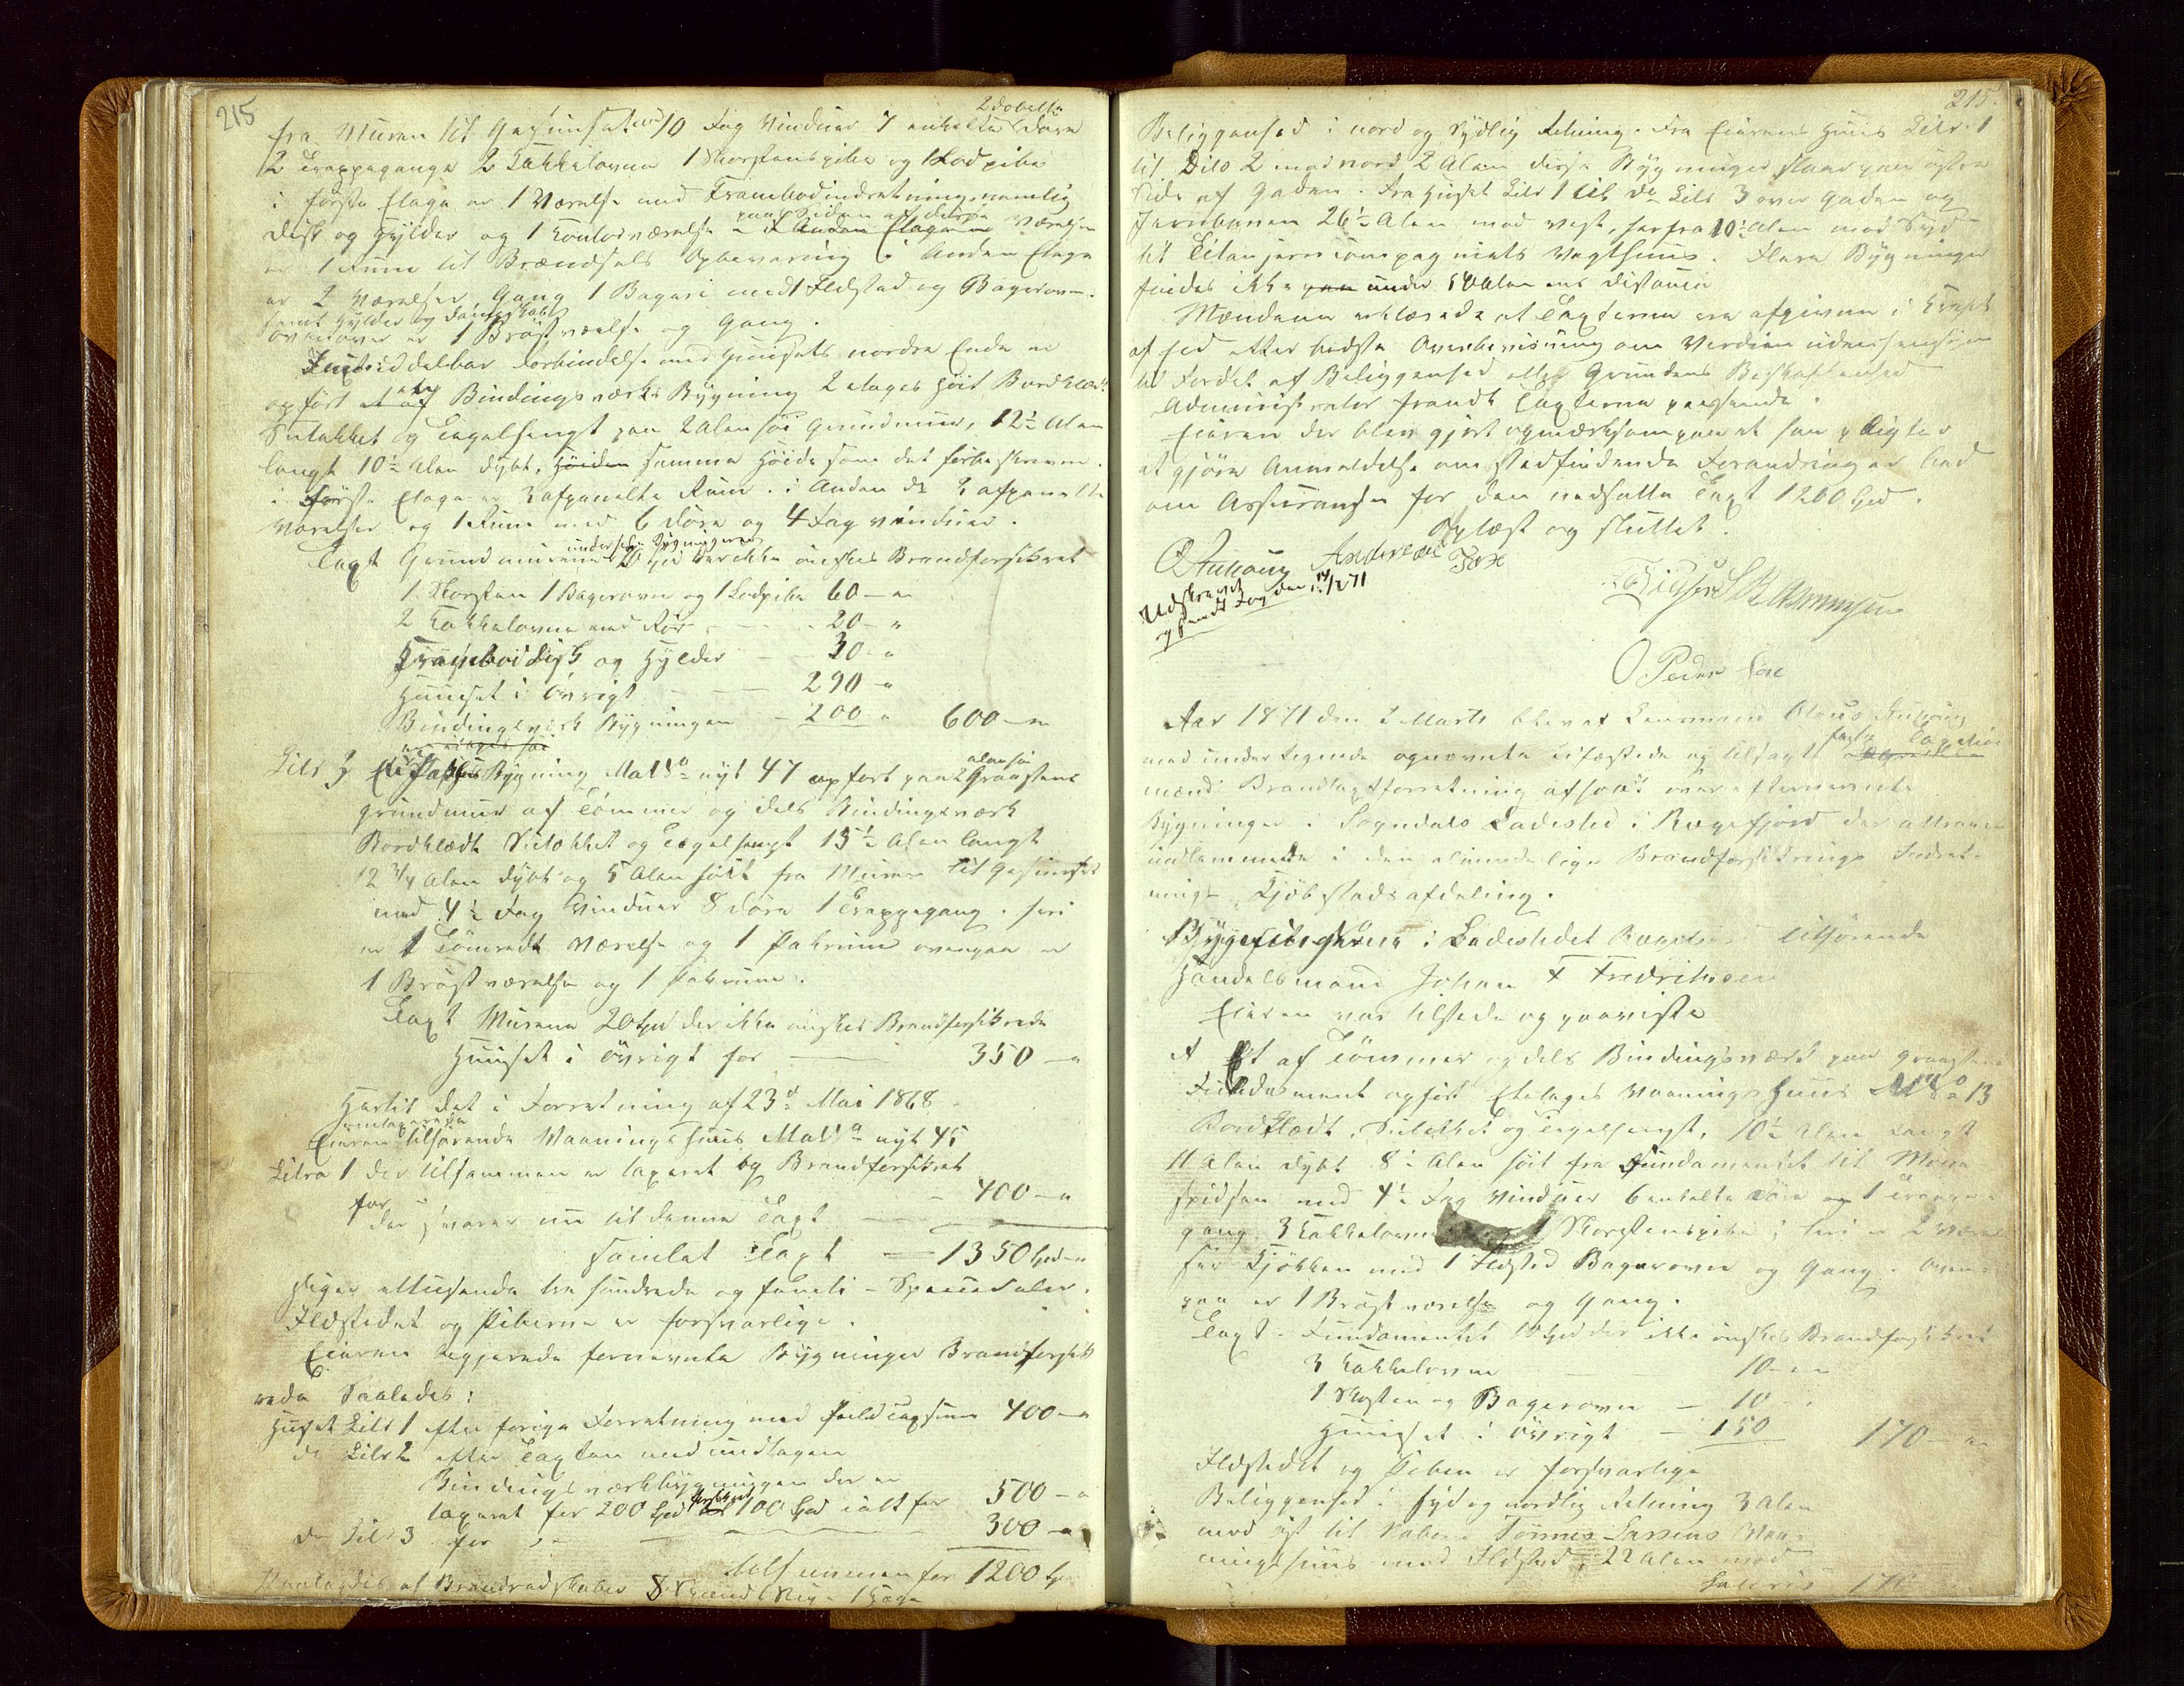 215
fra Muren til Gesimset med 10 Fag Vinduer 7 enkelte 2 dobelte Døre
2 Trappegange 2 Kakkelovne 1 Skorstenspibe og 1 Lodpibe
i første Etage er 1 Værelse med Krambodindretning nemlig
Disk og Hylder og 1 Kontorværelse paa Siden af disse Værelser
er 1 Rum til Brændsels Opbevaring i Anden Etage
er 2 Værelser, Gang 1 Bageri med 1 Ildsted og Bagerovn
samt Hylder og
ovenover er 1 Brøstværelse og Gang.
I umiddelbar Forbindelse med Huusets nordre Ende er
opført et af Bindingsværks Bygning 2 etages høit Bordklædt
Sutakket og Tegelhengt paa 2 Alen høi Grundmuur, 12½ Alen
langt 10½ Alen dybt, Høiden samme Høide som det førbeskrevne.
i første Etage er 3 afpanelte Rum. i Anden do 2 afpanelte
Værelser og 1 Rum med 6 Døre og 4 Fag vinduer.
Taxt Grundmurene under begge Bygningerne 20 Spd der ikke ønskes Brandforsikret
1 Skorsten 1 Bagerovn og 1 Lodpibe 60 – „
2 Kakkelovne med Rør – – 20 – „
Kramboddisk og Hylder – 30 – „
Huuset i øvrigt – – – 290 – „
Bindingsværk Bygningen – 200 „ 600 – „
Litr 3 Et Pakhus Bygning Mat No nyt 47 opført paa 2 alen høi Graastens
grundmur af Tømmer og dels Bindingsværk
Bordklædt Sutakket og Tegelhengt 15½ Alen langt
12 3/4 Alen dybt og 5 Alen høit fra Muren til Gesimset
med 4½ Fag Vinduer 8 døre 1 Trappegang. heri
er 1 Tømredt Værelse og 1 Pakrum ovenpaa er
1 Brøstværelse og 1 Pakrum.
Taxt Murene 20 Spd der ikke ønskes Brandforsikrede
Huuset i øvrigt for – – 350 – „
Hertil det i Forretning af 23de Mai 1868
Eieren tilhørende Vaaningshuus Mat No nyt 45
Litra 1 der tilsammen er taxeret og Brandforsikret
for – 400 – „
der svarer nu til denne Taxt –
Samlet Taxt – 1350 Spd – „
siger ettusende tre hundrede og femti – Speciedaler.
Ildstedet og Piberne er forsvarlige.
Eieren begjærede fornevnte Bygninger Brandforsik
rede Saaledes:
Huset Litr 1 efter forige Forretning med fuld Taxtsum 400 – „
do Litr 2 efter Taxten med undtagen
Bindingsværkbygningen der er
taxeret for 200 Spd forsikret 100 Spd ialt for 500 – „
do Litr 3 for – – 300 – „
tilsammen for 1200 Spd
af Brandredskaber 8
215.
Beliggenhed i nord og Sydlig Retning. Fra Eierens Huus Litr. 1
til Dito 2 mod nord 2 Alen disse Bygninger staar paa østre
Side af Gaden. Fra Huset Litr 1 til do Litr 3 over Gaden og
Jernbanen 26½ Alen mod vest, herfra 10½ Alen mod Syd
til Titanjerncompagniets Vagthuus. Flere Bygninger
findes ikke paa under 50 Alens Distance
Mændene erklærede at Taxterne ere afgivne i Kraft
af Ed efter bedste Overbevisning om Verdien uden hensyn
til Fordel af Beliggenhed eller Grundens Beskaffenhed
Administrator fandt Taxterne passende.
Eieren der blev gjort opmærksom paa at han pligter
at gjøre Anmeldelse om stedfindende Forandringer bad
om Assuranse for den nedsatte Taxt 1200 Spd.
Oplæst og sluttet.
O Pedersen
Udskrevet
og sendt Fog den 14/3 71
Aar 1871 den 2 Marts blev af Lensmann Olaus
med undertegnede opnævnte edfæstede og tilsagte faste Taxations
mænd Brandtaxtforretning afholdt over efternevnte
Bygninger i Sogndals Ladested i Rægefjord der attraaes
indlemmede i den almindelige Brandforsikrings Indret-
nings Kjøbstadsafdeling.
Bygningerne i Ladestedet Rægefjord tilhørende
Handelsmand Johan F Fredriksen
Eieren var tilstede og paaviste
A Et af Tømmer og dels Bindingsværk paa graasten
Fundament opført Etetages Vaanings Huus Mat No 13
Bordklædt, Sutakket og Tegelhengt, 10½ Alen langt
11 Alen dybt 8½ Alen høit fra Fundamentet til Møne
spidsen med 4½ Fag Vinduer 6 enkelte Døre og 1 Trappe-
gang 3 Kakkelovne 1 Skorstenspibe, heri er 2 Være
ser Kjøkken med 1 Ildsted Bagerovn og Gang. Oven-
paa er 1 Brøstværelse og Gang.
Taxt. Fundamentet 10 Spd der ikke ønskes Brandforsikret
3 Kakkelovne – 10 – „
1 Skorsten og Bagerovn – 10 –
Huuset i øvrigt – 150 170 – „
Ildstedet og Piben er forsvarlige
Beliggenhed i syd og nordlig Retning 3 Alen
mod øst til Naboen Tønnes Larsens Vaa-
ningshuus med Ildsted, 22 Alen mod
Lateris 170